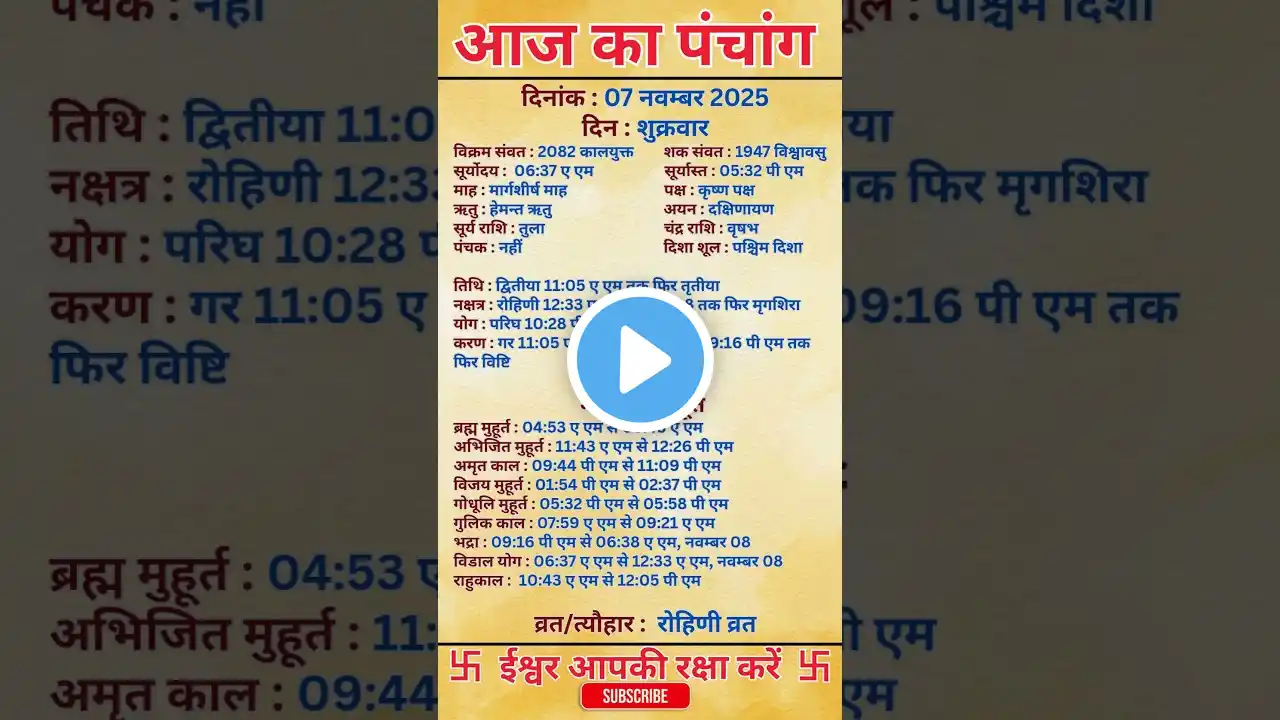 आज का पंचांग
दिनांक : 07 नवम्बर 2025
दिन : शुक्रवार
विक्रम संवत : 2082 कालयुक्त शक संवत : 1947 विश्वावसु
सूर्योदय : 06:37 ए एम सूर्यास्त : 05:32 पी एम
माह : मार्गशीर्ष माह पक्ष : कृष्ण पक्ष
ऋतु : हेमन्त ऋतु अयन : दक्षिणायण
सूर्य राशि : तुला चंद्र राशि : वृषभ
पंचक : नहीं दिशा शूल : पश्चिम दिशा
तिथि : द्वितीया 11:05 ए एम तक फिर तृतीया
नक्षत्र : रोहिणी 12:33 तक फिर मृगशिरा
योग : परिघ 10:28
करण : गर 11:05 09:16 पी एम तक
फिर विष्टि
ब्रह्म मुहूर्त : 04:53 ए एम से ए एम
अभिजित मुहूर्त : 11:43 ए एम से 12:26 पी एम
अमृत काल : 09:44 पी एम से 11:09 पी एम
विजय मुहूर्त : 01:54 पी एम से 02:37 पी एम
गोधूलि मुहूर्त : 05:32 पी एम से 05:58 पी एम
गुलिक काल : 07:59 ए एम से 09:21 ए एम
भद्रा : 09:16 पी एम से 06:38 ए एम, नवम्बर 08
विडाल योग : 06:37 ए एम से 12:33 ए एम, नवम्बर 08
राहुकाल : 10:43 ए एम से 12:05 पी एम
व्रत/त्यौहार : रोहिणी व्रत
卐 ईश्वर आपकी रक्षा करें 卐
SUBSCRIBE